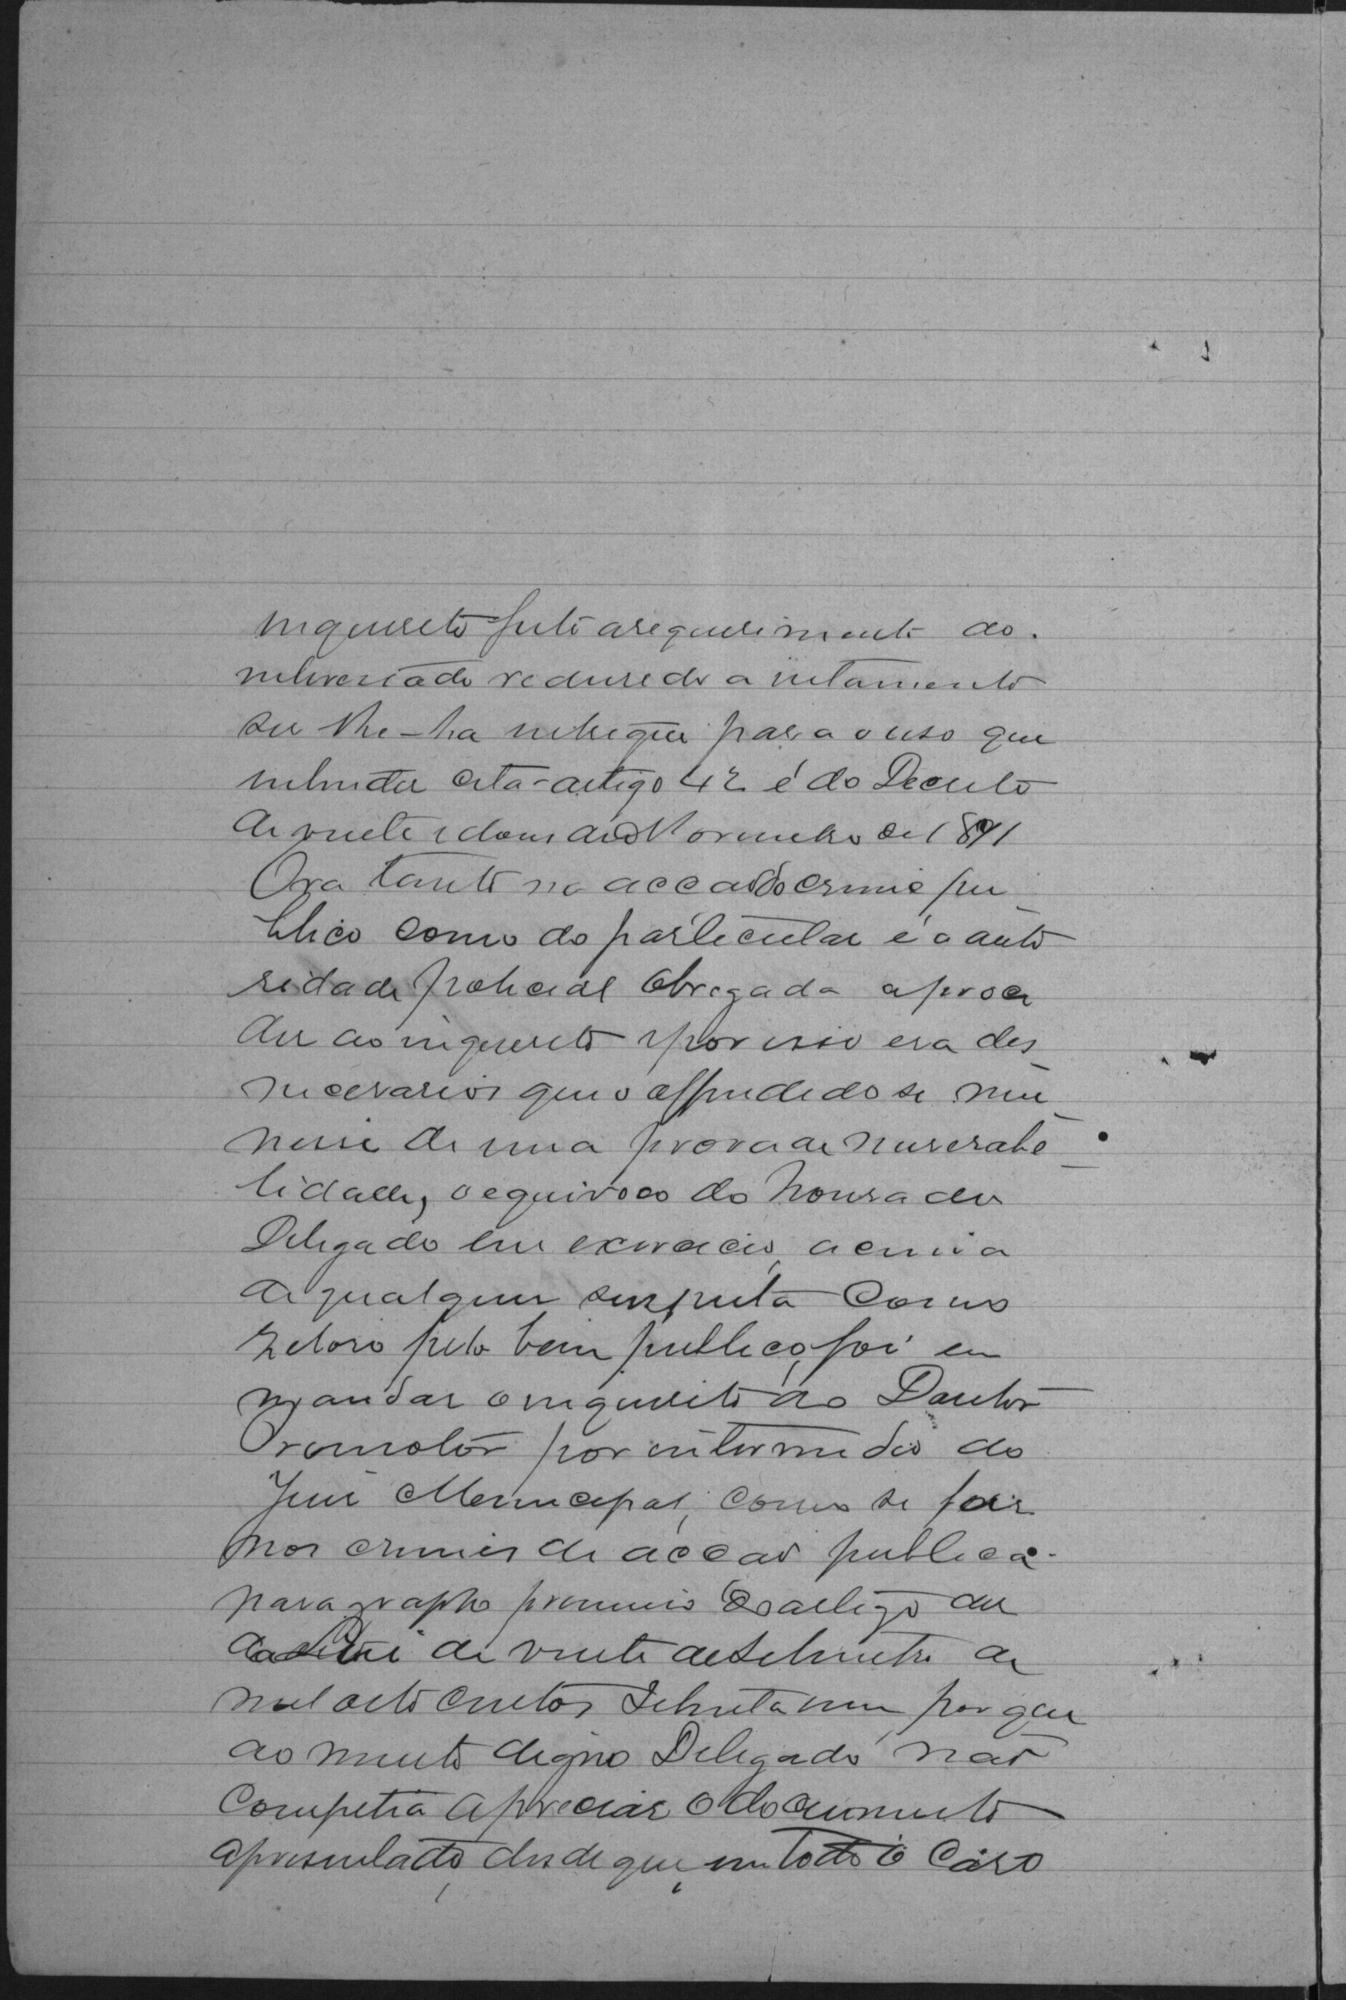 inquerito feito a requerimento do.
interessado reduzido a instrumento
ser lhe-ha entregue para o uso que
entender esta-artigo 42 é do Decreto
de vinte e dous de Novembro de 1871
Ora tanto na accao do crime pu_
blico como do particular é a auto
ridade policial obrigada a proce
der ao inquerito e por isso era des_
necesarios que o offendido se mu_
nisse de uma prova de miserabe_
lidade, o equivoco do honrado
Delegado em exercicio, acima
de qualquer suspeita como
zeloso pelo bem publico, foi em
mandar o inquerito ao Doutor
Promotor por intermedio do
Juis Municipal, como se fas
nos crimes de accao publica-
paragrapho primeiro do artigo des
da Lei de vinte de Setembro de
mil oito centos setenta um, porque
ao muito digno Delegado não
competia apreciar o documento
apresentado, desde que, em todo o caso